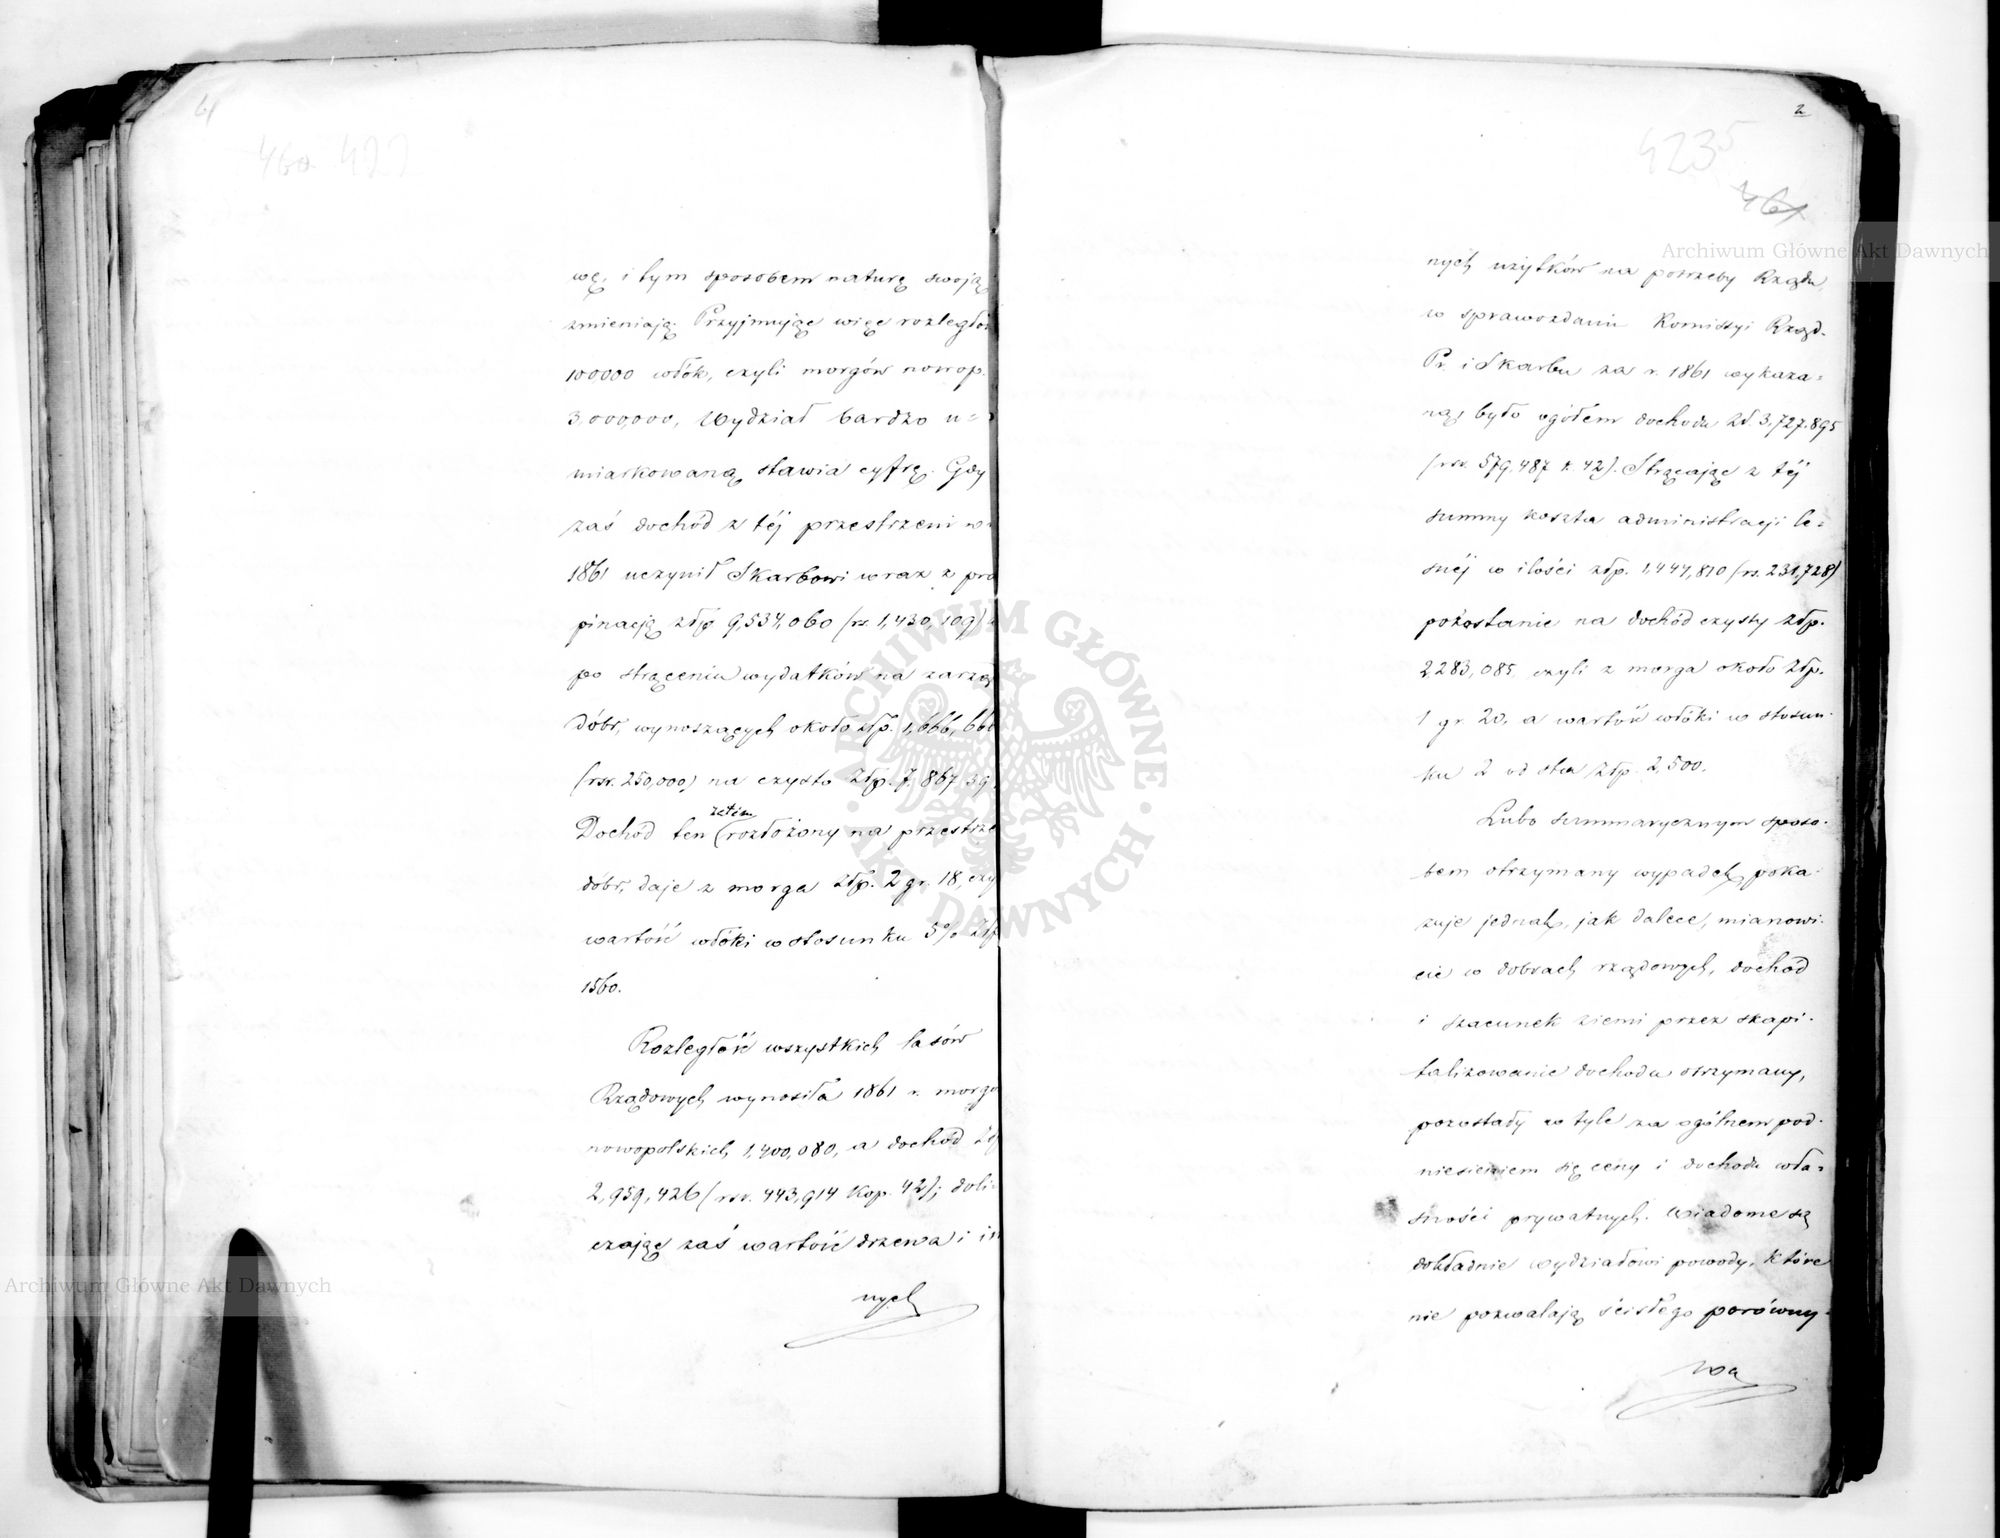 4
460 422
wę, i tym sposobem naturę swoją
zmieniają. Przyjmując więc rozległoś
100000 włók, czyli morgów nowop.
3,000,000, Wydział bardzo u=
miarkowaną stawia cyfrę. Gdy
zaś dochód z téj przestrzeni w
1861 uczynił Skarbowi wraz z pro
pinacją złp 9,534,060 (rs 1,430,109)
po strąceniu wydatków na zarząd
dóbr, wynoszących około złp. 1,666,666
(rsr. 250,000) na czysto złp. 7,867,39
zatém
Dochód ten (rozłożony na przestrze
dóbr, daje z morga złp. 2 gr. 18, czy
wartość włóki w stosunku 5% złp
1560.
Rozległość wszystkich lasów
Rządowych wynosiła 1861 r. morgo
nowopolskich 1,400,080, a dochód zł
2,959,426 (rsr. 443,914 kop. 42); doli=
czając zaś wartość drzewa i in
nych
2
423 5
461
nych użytków na potrzeby Rządu
w sprawozdaniu Komissyi Rząd.
Pr. i Skarbu za r. 1861 wykaza=
ną, było ogółem dochodu zł. 3,727,895
(rsr. 579,487 k. 42). Strącając z téj
summy koszta administracji le=
snéj w ilości złp. 1,444,810 (rs. 231,728)
pozostanie na dochód czysty złp.
2,283,085, czyli z morga około złp.
1 gr. 20, a wartość włóki w stosun=
ku 2 od sta złp. 2,500.
Lubo summarycznym sposo=
bem otrzymany wypadek poka=
zuje jednak, jak dalece, mianowi=
cie w dobrach rządowych, dochód
i szacunek ziemi przez skapi=
talizowanie dochodu otrzymany,
pozostały w tyle za ogólnem pod=
niesieniem się ceny i dochodu wła=
sności prywatnych. Wiadome są
dokładnie wydziałowi powody, które
nie pozwalają ścisłego porówny=
wa
Archiwum Główne Akt Dawnych
Archiwum Główne Akt Dawnych
ARCHIWUM GŁÓWNE AKT DAWNYCH